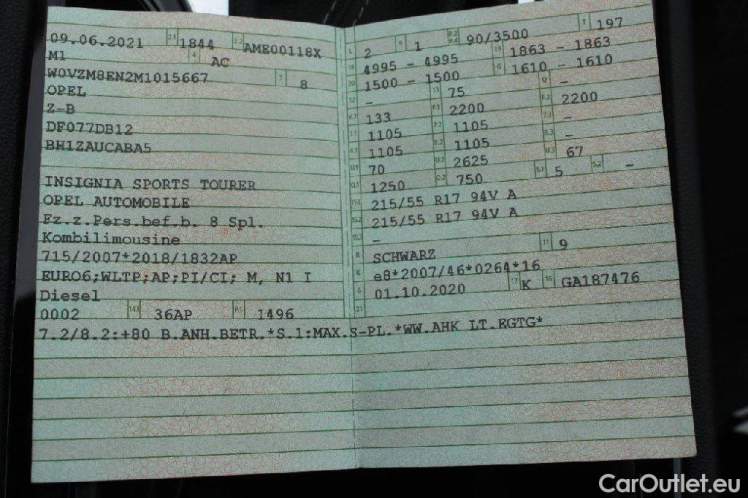 09.06.2021 2.1 1844 2.2 AME00118X
M1 4 AC
W0VZM8EN2M1015667 3 8
OPEL
Z-B
DF077DB12
BH1ZAUCABA5
INSIGNIA SPORTS TOURER
OPEL AUTOMOBILE
Fz.z.Pers.bef.b. 8 Spl.
Kombilimousine
715/2007*2018/1832AP
EURO6;WLTP;AP;PI/CI; M, N1 I
Diesel
0002 14.1 36AP P.1 1496
L 2 9 1 P.2 P.4 90/3500 T 197
18 4995 - 4995 19 1863 - 1863
20 1500 - 1500 G 1610 - 1610
12 - 13 75 Q -
V.7 133 F.1 2200 F.2 2200
7.1 1105 7.2 1105 7.3 -
8.1 1105 8.2 1105 8.3 -
U.1 70 U.2 2625 U.3 67
O.1 1250 O.2 750 S.1 5 S.2 -
15.1 215/55 R17 94V A
15.2 215/55 R17 94V A
15.3 -
R SCHWARZ 11 9
K e8*2007/46*0264*16
6 01.10.2020 17 K 16 GA187476
21
7.2/8.2:+80 B.ANH.BETR.*S.1:MAX.S-PL.*WW.AHK LT.RGTG*
CarOutlet.eu